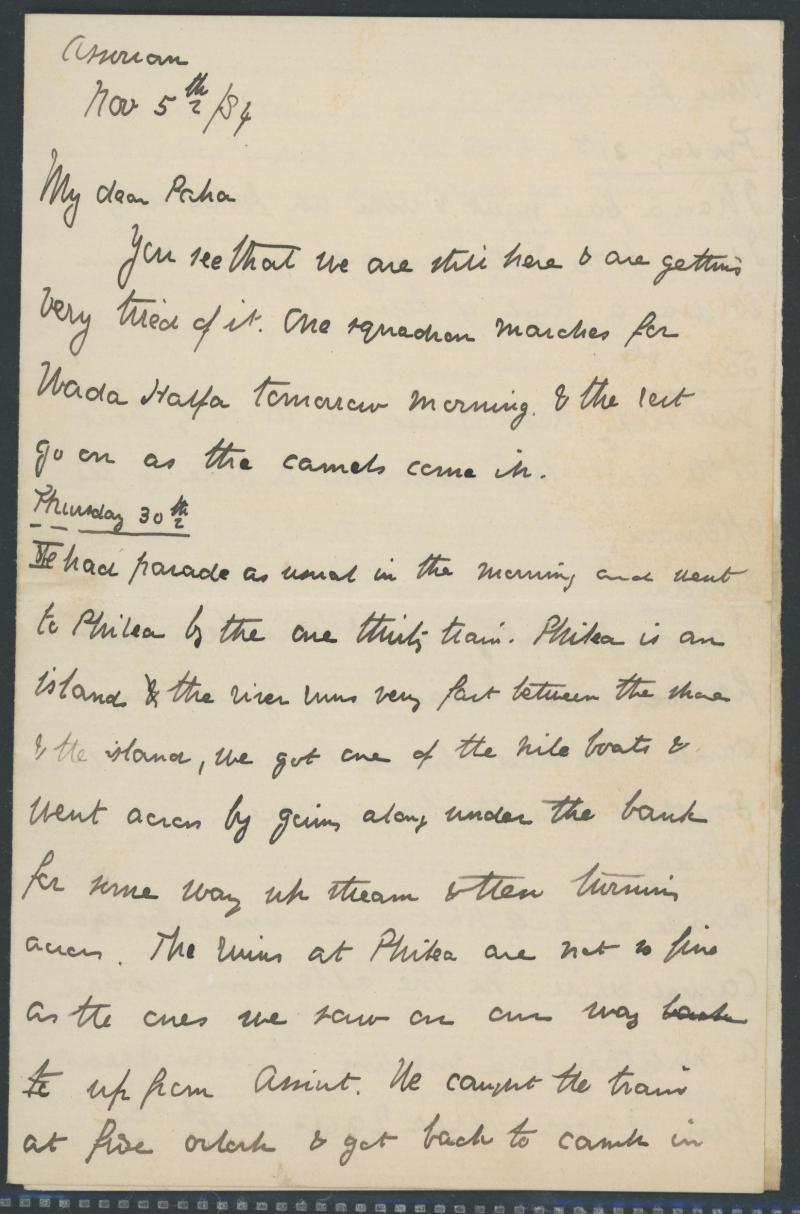 Assouan
Nov 5th /84
My dear Papa
You see that we are still here & are getting
very tired of it. One squadron marches for
Wada Halfa tomorrow morning. & the rest
go on as the camels come in.
Thursday 30th
We had parade as usual in the morning and went
to Philea by the one thirty train. Philea is an
island & the river runs very fast between the shore
& the island, we got one of the nile boats &
went across by going along under the bank
for some way up stream & then turning
across. The ruins at Philea are not so fine
as the ones we saw on our way back
to up from Assiut. We caught the train
at five oclock & got back to camp in